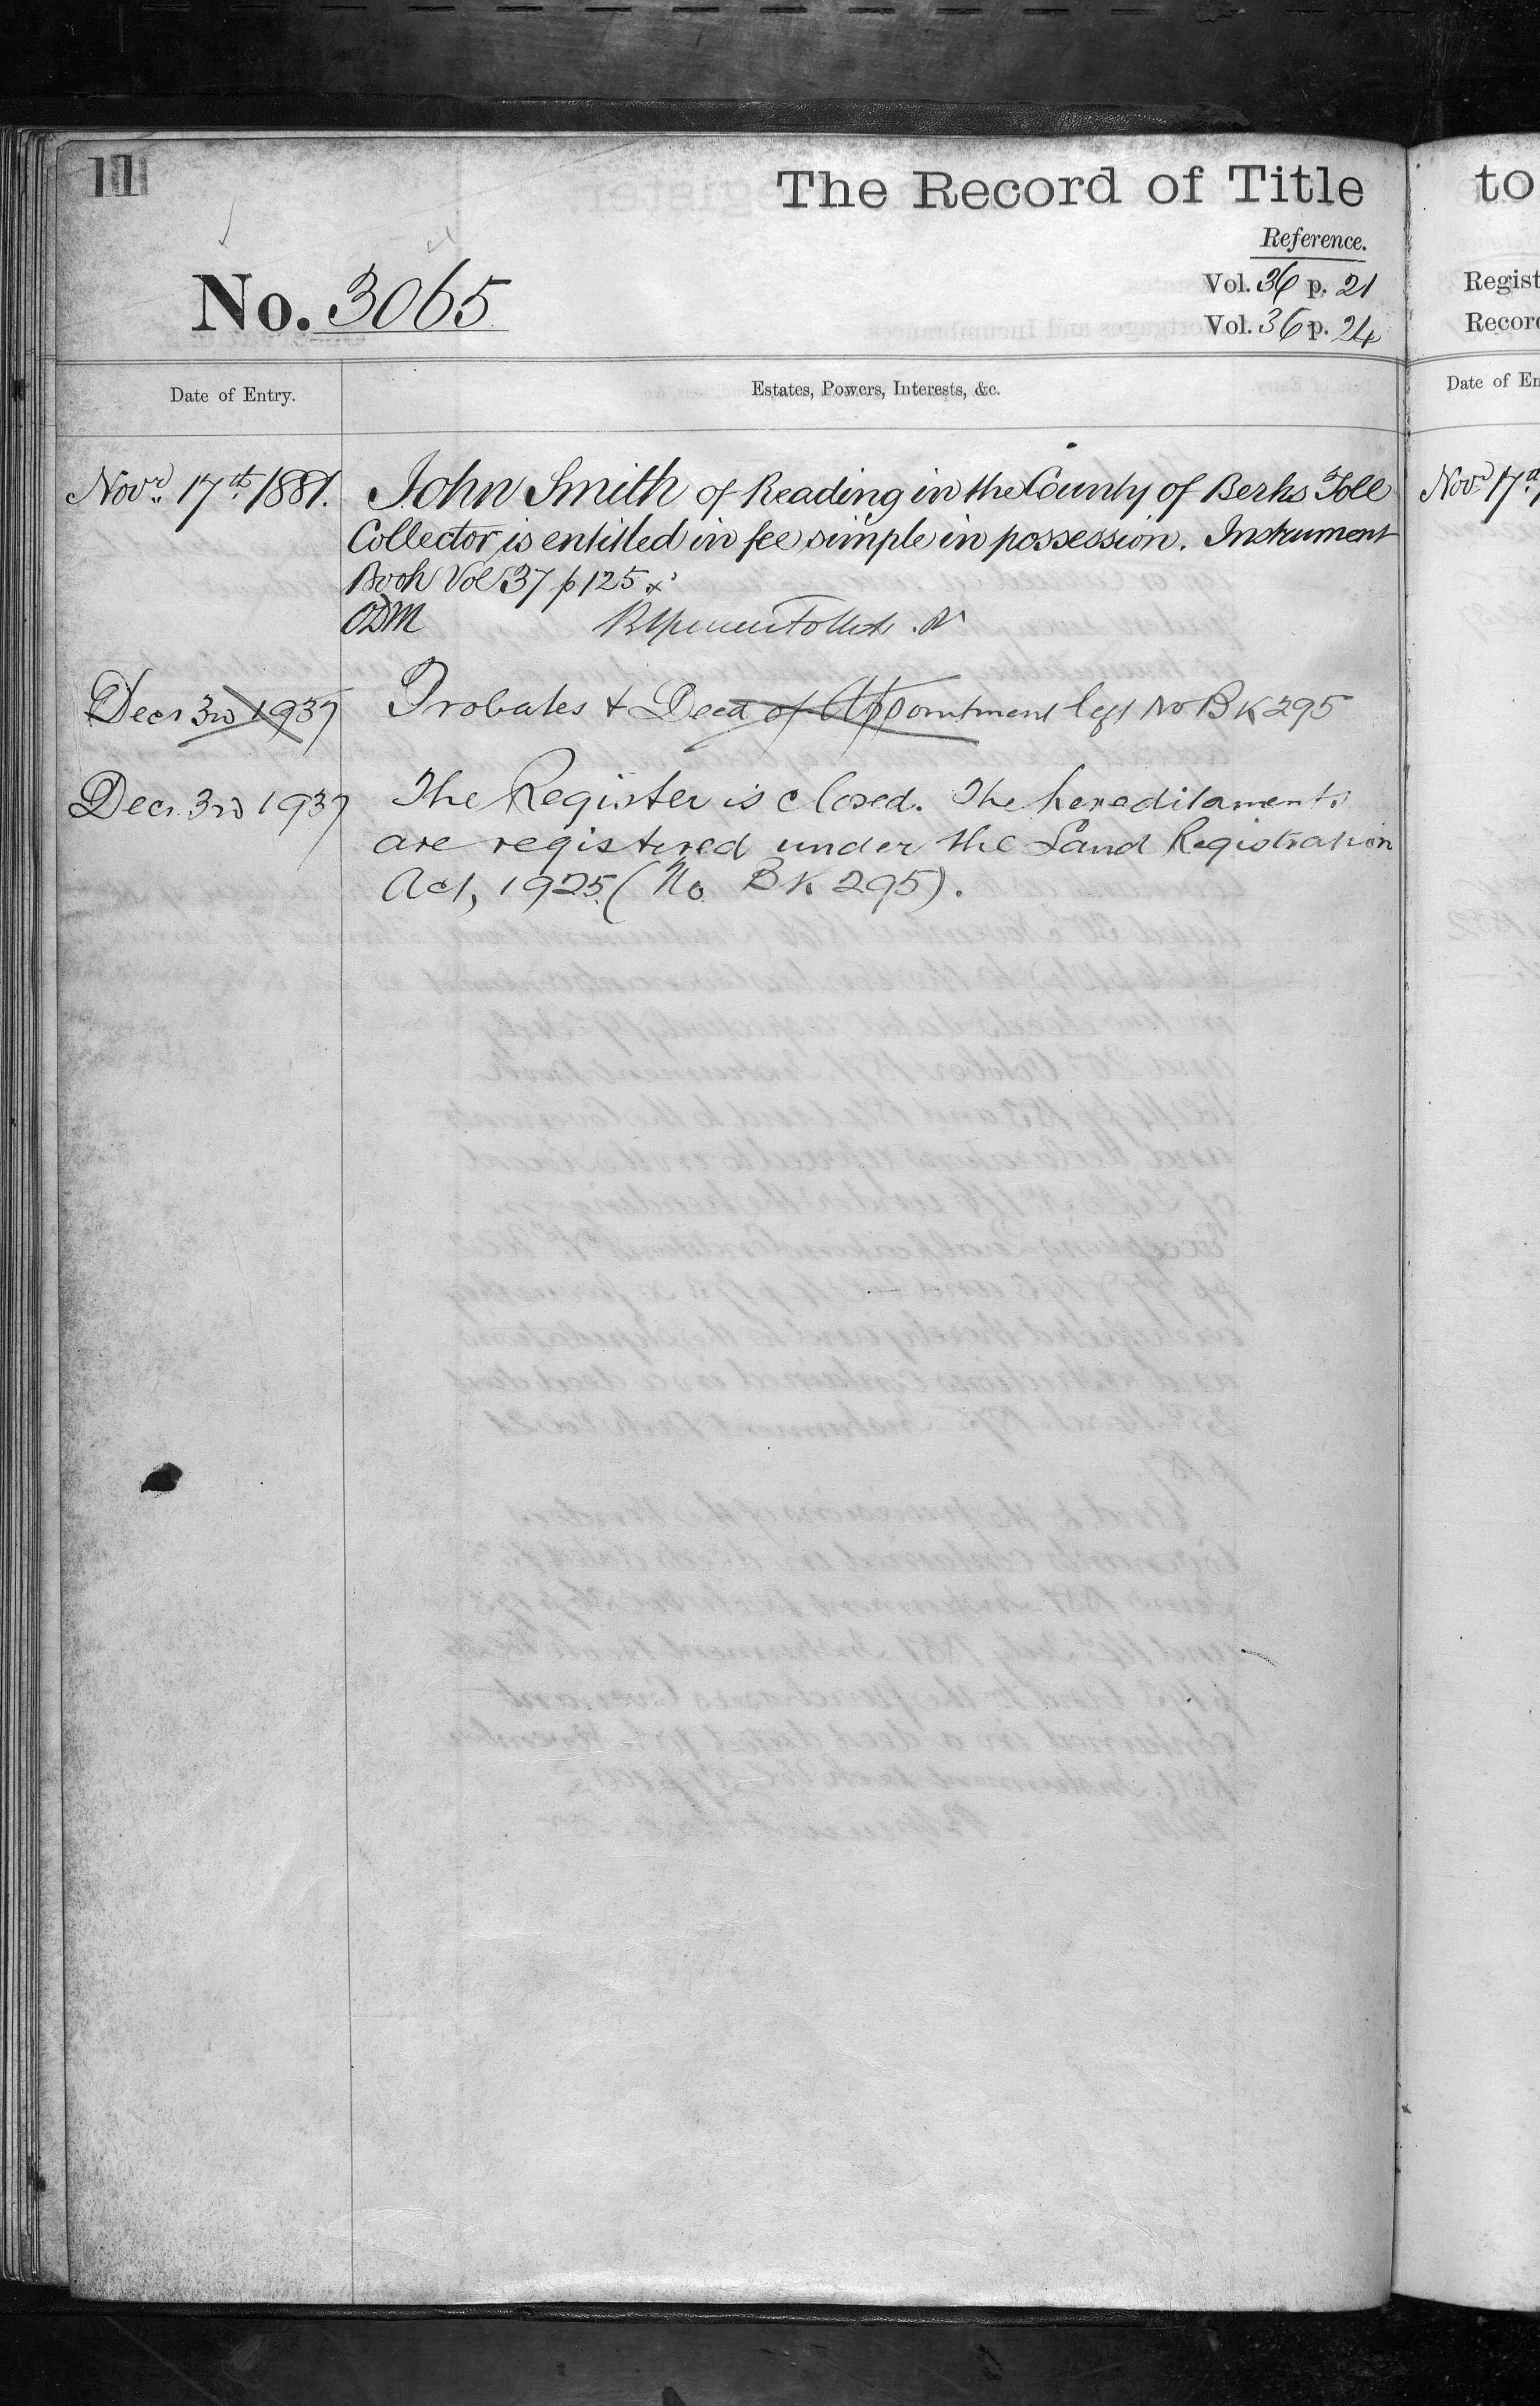 11
The Record of Title
Reference.
No. 3065
Vol. 36 p. 21
Vol. 36 p. 24
Date of Entry.
Estates, Powers, Interests, &c.
Novr. 17th 1881.
John Smith of Reading in the County of Berks Toll
Collector is entitled in fee simple in possession. Instrument
Book Vol 37 p 125
ODM
Decr 3rd 1937
Probates & Deed of Appointment left No BK 295
Decr 3rd 1937
The Register is closed. The hereditaments
are registered under the Land Registration
Act, 1925. (No BK 295).
to
Regist
Record
Date of En
Novr 17th